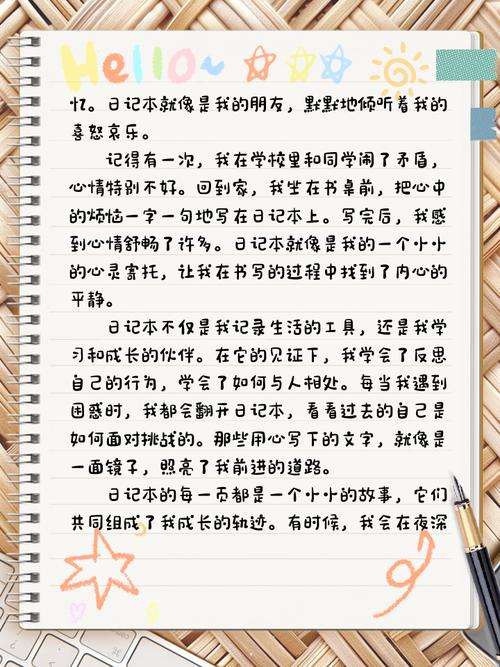 Hello~
忆。日记本就像是我的朋友，默默地倾听着我的
喜怒哀乐。
记得有一次，我在学校里和同学闹了矛盾，
心情特别不好。回到家，我坐在书桌前，把心中
的烦恼一字一句地写在日记本上。写完后，我感
到心情舒畅了许多。日记本就像是我的一个小小
的心灵寄托，让我在书写的过程中找到了内心的
平静。
日记本不仅是我记录生活的工具，还是我学
习和成长的伙伴。在它的见证下，我学会了反思
自己的行为，学会了如何与人相处。每当我遇到
困惑时，我都会翻开日记本，看看过去的自己是
如何面对挑战的。那些用心写下的文字，就像是
一面镜子，照亮了我前进的道路。
日记本的每一页都是一个小小的故事，它们
共同组成了我成长的轨迹。有时候，我会在夜深